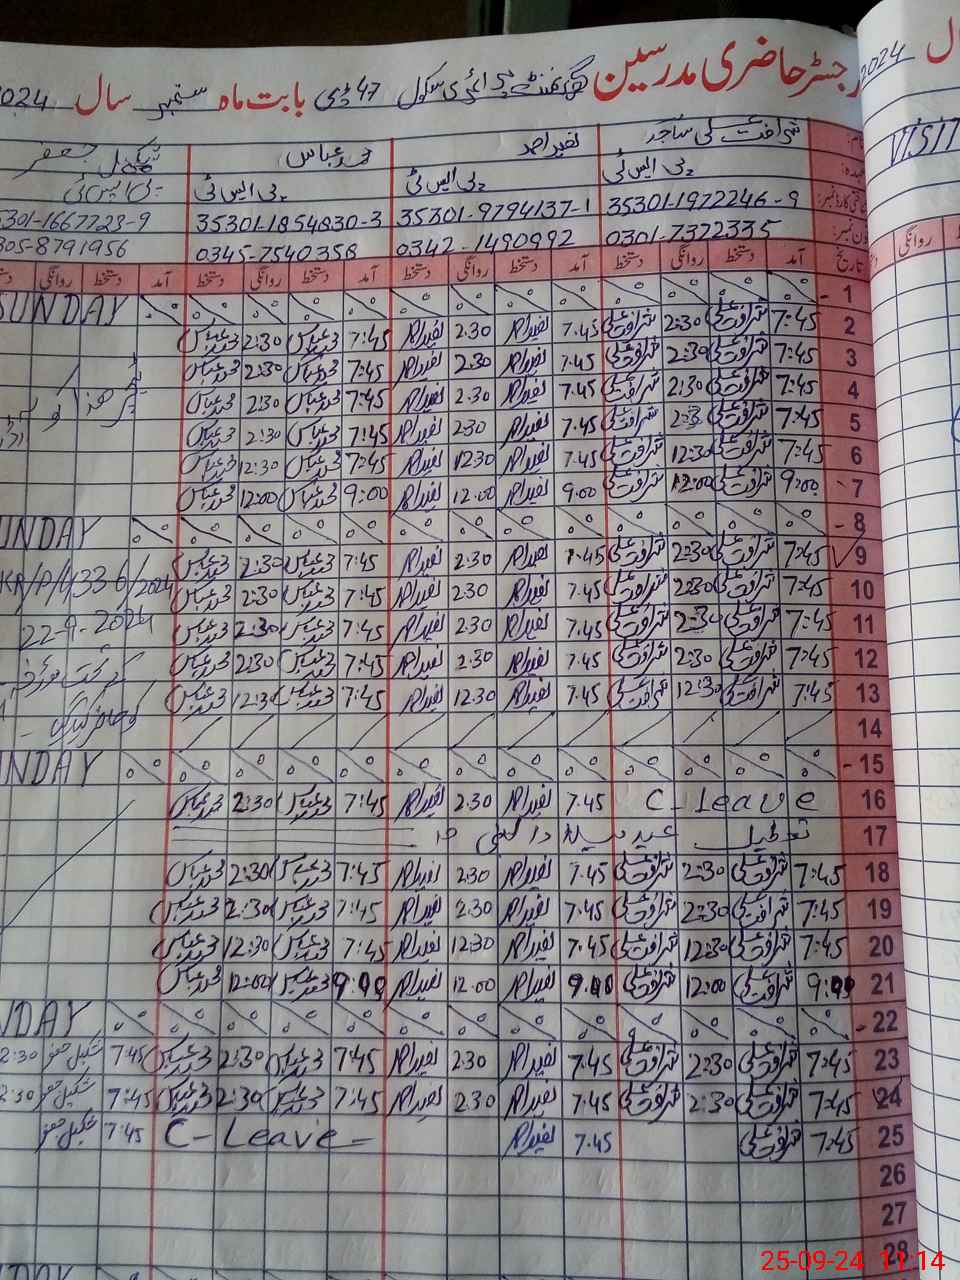 رجسٹر حاضری مدرسین گورنمنٹ پرائمری سکول 47 ڈی بابت ماہ ستمبر سال 2024
2024 ال
VISIT
شرافت علی ساجد نصیر احمد محمد عباس شکیل جعفر
پی ایس ٹی پی ایس ٹی پی ایس ٹی پی ایس ٹی
35301-1972246-9 35301-9794137-1 35301-1854830-3 5301-1667723-9
0301-7372335 0342-1490992 0345-7540358 305-8791956
تاریخ آمد دستخط روانگی دستخط آمد دستخط روانگی دستخط آمد دستخط روانگی دستخط آمد دستخط روانگی
1 SUNDAY
2 7:45 شرافت علی 2:30 شرافت علی 7.45 نصیر احمد 2.30 نصیر احمد 7:45 محمد عباس 2:30 محمد عباس
3 7:45 شرافت علی 2:30 شرافت علی 7.45 نصیر احمد 2.30 نصیر احمد 7:45 محمد عباس 2:30 محمد عباس
4 7:45 شرافت علی 2:30 شرافت علی 7.45 نصیر احمد 2.30 نصیر احمد 7:45 محمد عباس 2:30 محمد عباس
5 7:45 شرافت علی 2:3 شرافت علی 7.45 نصیر احمد 2.30 نصیر احمد 7:45 محمد عباس 2:30 محمد عباس
6 7:45 شرافت علی 12:30 شرافت علی 7.45 نصیر احمد 12.30 نصیر احمد 7:45 محمد عباس 12:30 محمد عباس
7 9:00 شرافت علی 12:00 شرافت علی 9.00 نصیر احمد 12.00 نصیر احمد 9:00 محمد عباس 12:00 محمد عباس
8 UNDAY
9 7:45 شرافت علی 2:30 شرافت علی 7.45 نصیر احمد 2.30 نصیر احمد 7:45 محمد عباس 2:30 محمد عباس
10 7:45 شرافت علی 2:30 شرافت علی 7.45 نصیر احمد 2.30 نصیر احمد 7:45 محمد عباس 2:30 محمد عباس
11 7:45 شرافت علی 2:30 شرافت علی 7.45 نصیر احمد 2.30 نصیر احمد 7:45 محمد عباس 2:30 محمد عباس
12 7:45 شرافت علی 2:30 شرافت علی 7.45 نصیر احمد 2.30 نصیر احمد 7:45 محمد عباس 2:30 محمد عباس
13 7:45 شرافت علی 12:30 شرافت علی 7.45 نصیر احمد 12.30 نصیر احمد 7:45 محمد عباس 12:30 محمد عباس
14
15 NDAY
16 C-Leave 7.45 نصیر احمد 2.30 نصیر احمد 7:45 محمد عباس 2:30 محمد عباس
17 تعطیل عید میلاد النبی
18 7:45 شرافت علی 2:30 شرافت علی 7.45 نصیر احمد 2.30 نصیر احمد 7:45 محمد عباس 2:30 محمد عباس
19 7:45 شرافت علی 2:30 شرافت علی 7.45 نصیر احمد 2.30 نصیر احمد 7:45 محمد عباس 2:30 محمد عباس
20 7:45 شرافت علی 12:30 شرافت علی 7.45 نصیر احمد 12.30 نصیر احمد 7:45 محمد عباس 12:30 محمد عباس
21 9:00 شرافت علی 12:00 شرافت علی 9.00 نصیر احمد 12.00 نصیر احمد 9:00 محمد عباس 12:00 محمد عباس
22 NDAY
23 7:45 شرافت علی 2:30 شرافت علی 7.45 نصیر احمد 2.30 نصیر احمد 7:45 محمد عباس 2:30 محمد عباس 7:45 شکیل جعفر 2:30
24 7:45 شرافت علی 2:30 شرافت علی 7.45 نصیر احمد 2.30 نصیر احمد 7:45 محمد عباس 2:30 محمد عباس 7:45 شکیل جعفر 2:30
25 7:45 شرافت علی 7.45 نصیر احمد C-Leave 7:45 شکیل جعفر
26
27
28
25-09-24 11:14